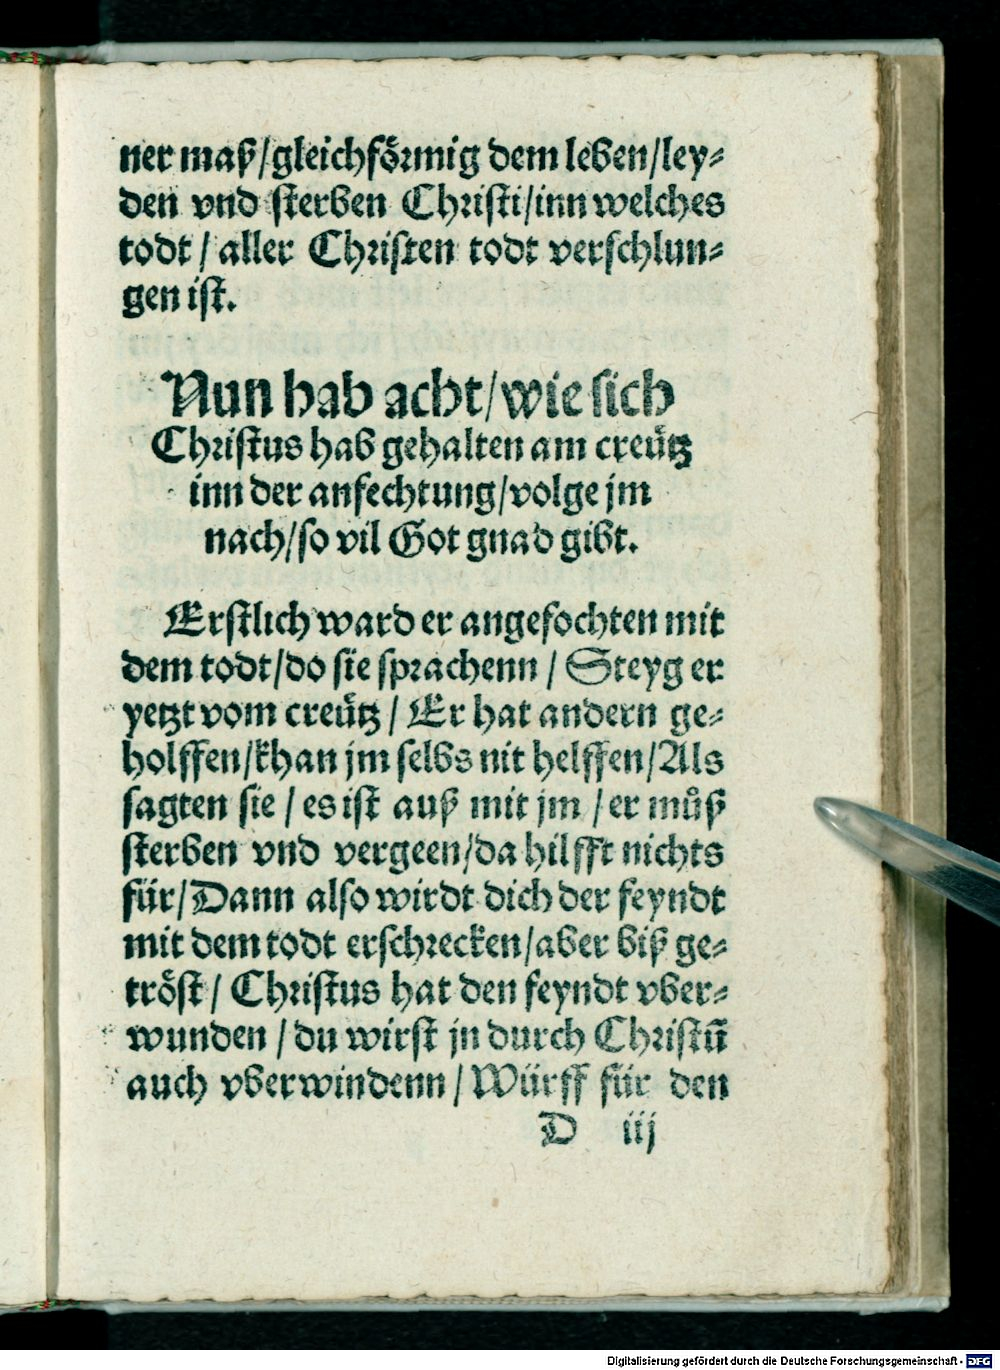 ner maß/gleichfoͤrmig dem leben/ley⸗
den vnd sterben Christi/inn welches
todt / aller Christen todt verschlun⸗
gen ist.
Nun hab acht/wie sich
Christus hab gehalten am creuͤtz
inn der anfechtung/volge jm
nach/so vil Got gnad gibt.
Erstlich ward er angefochten mit
dem todt/do sie sprachenn / Steyg er
yetzt vom creuͤtz / Er hat andern ge⸗
holffen/khan jm selbs nit helffen/Als
sagten sie / es ist auß mit jm / er muͦß
sterben vnd vergeen/da hilfft nichts
für/Dann also wirdt dich der feyndt
mit dem todt erschrecken/aber biß ge⸗
troͤst / Christus hat den feyndt vber⸗
wunden / du wirst jn durch Christū
auch vberwindenn / Würff für den
D iij
Digitalisierung gefördert durch die Deutsche Forschungsgemeinschaft - DFG